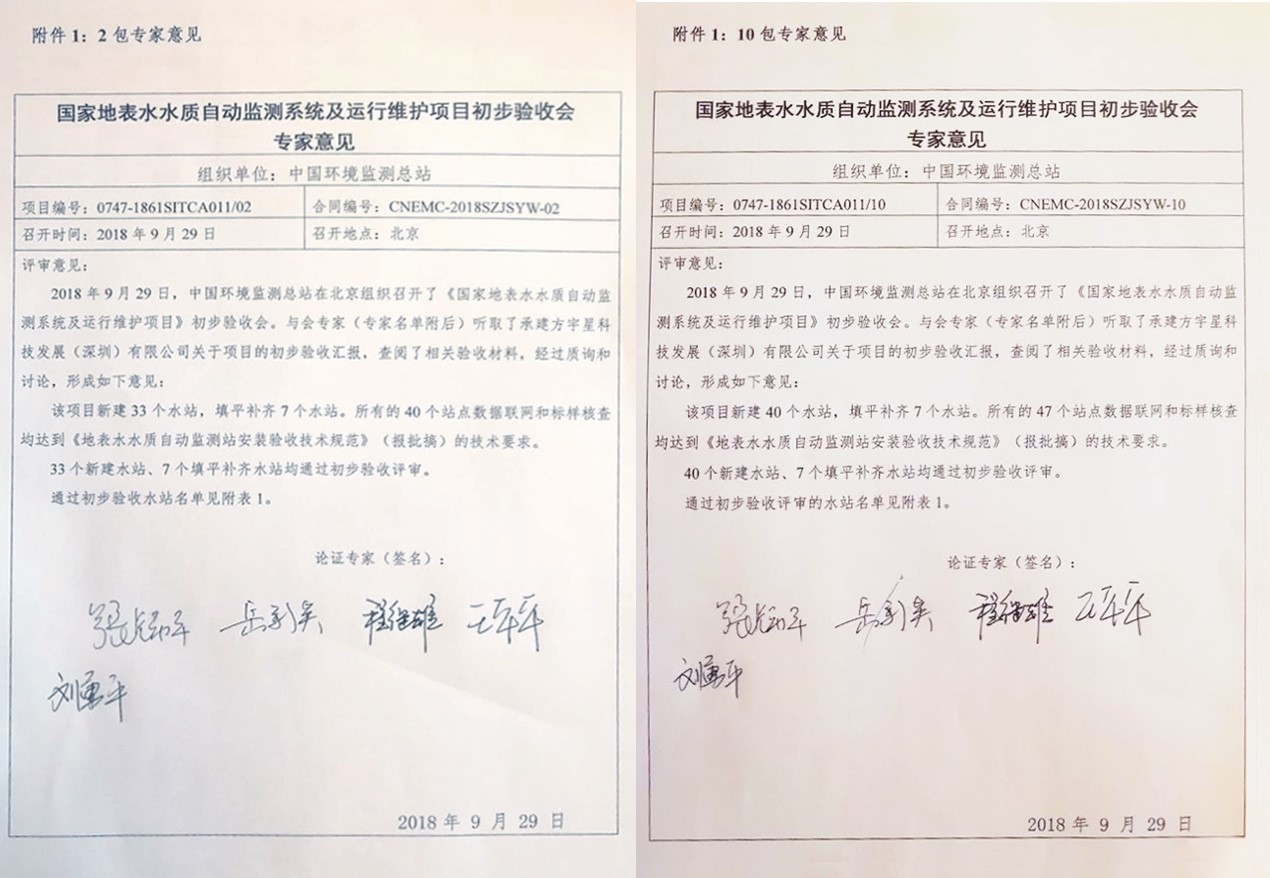 附件 1：2 包专家意见
国家地表水水质自动监测系统及运行维护项目初步验收会
专家意见
组织单位：中国环境监测总站
项目编号：0747-1861SITCA011/02
合同编号：CNEMC-2018SZJSYW-02
召开时间：2018 年 9 月 29 日
召开地点：北京
评审意见：
2018 年 9 月 29 日，中国环境监测总站在北京组织召开了《国家地表水水质自动监
测系统及运行维护项目》初步验收会。与会专家（专家名单附后）听取了承建方宇星科
技发展（深圳）有限公司关于项目的初步验收汇报，查阅了相关验收材料，经过质询和
讨论，形成如下意见：
该项目新建 33 个水站，填平补齐 7 个水站。所有的 40 个站点数据联网和标样核查
均达到《地表水水质自动监测站安装验收技术规范》（报批搞）的技术要求。
33 个新建水站、7 个填平补齐水站均通过初步验收评审。
通过初步验收水站名单见附表 1。
论证专家（签名）：
王军平
刘勇平
2018 年 9 月 29 日
附件 1：10 包专家意见
国家地表水水质自动监测系统及运行维护项目初步验收会
专家意见
组织单位：中国环境监测总站
项目编号：0747-1861SITCA011/10
合同编号：CNEMC-2018SZJSYW-10
召开时间：2018 年 9 月 29 日
召开地点：北京
评审意见：
2018 年 9 月 29 日，中国环境监测总站在北京组织召开了《国家地表水水质自动监
测系统及运行维护项目》初步验收会。与会专家（专家名单附后）听取了承建方宇星科
技发展（深圳）有限公司关于项目的初步验收汇报，查阅了相关验收材料，经过质询和
讨论，形成如下意见：
该项目新建 40 个水站，填平补齐 7 个水站。所有的 47 个站点数据联网和标样核查
均达到《地表水水质自动监测站安装验收技术规范》（报批搞）的技术要求。
40 个新建水站、7 个填平补齐水站均通过初步验收评审。
通过初步验收评审的水站名单见附表 1。
论证专家（签名）：
刘勇平
2018 年 9 月 29 日